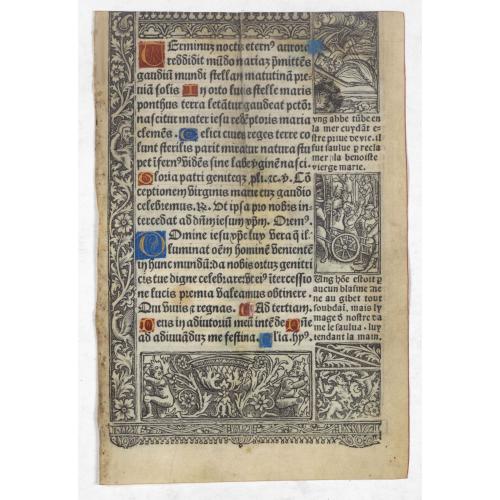 Terminus noctis eterne aurora
reddidit mūdo mariaz p̄mittēs
gaudiū mundi stellam matutinā pre
uiā solis In ortu huis stelle maris
ponthus terra letātur gaudeat pctōr
nascitur mater iesu redēptoris maria
clemēs. Celici ciues reges terre co
lunt sterilis parit miratur natura stu
pet īfern⁹ vidēs sine labe v̄gine nasci.
Gloria patri genitoq̄. pli. ⁊c. ℣. Cō
ceptionem virginis marie cum gaudio
celebremus. ℟. Ut ipsa pro nobis in
tercedat ad dn̄m iesum xp̄m. Orem⁹.
Domine iesu xp̄e lux vera q̄ il
luminat oēm hominē venientē
in hunc mundū: da nobis ortū genitri
cis tue digne celebrare: vt ei⁹ ītercessio
ne lucis premia valeamus obtinere.
Qui viuis ⁊ regnas. Ad tertiam.
Deus in adiutoriū meū intēde Dn̄e
ad adiuuādū me festina. Glia. hy⁹.
vng abbe tūbe en
la mer cuydāt e-
stre priue de vie. il
fut saulue p recla
mer la benoiste
vierge marie.
Ung hōe estoit p
aucun blasme me
ne au gibet tout
soubdaī. mais ly
mage d nostre da
me le saulua. luy
tendant la main.